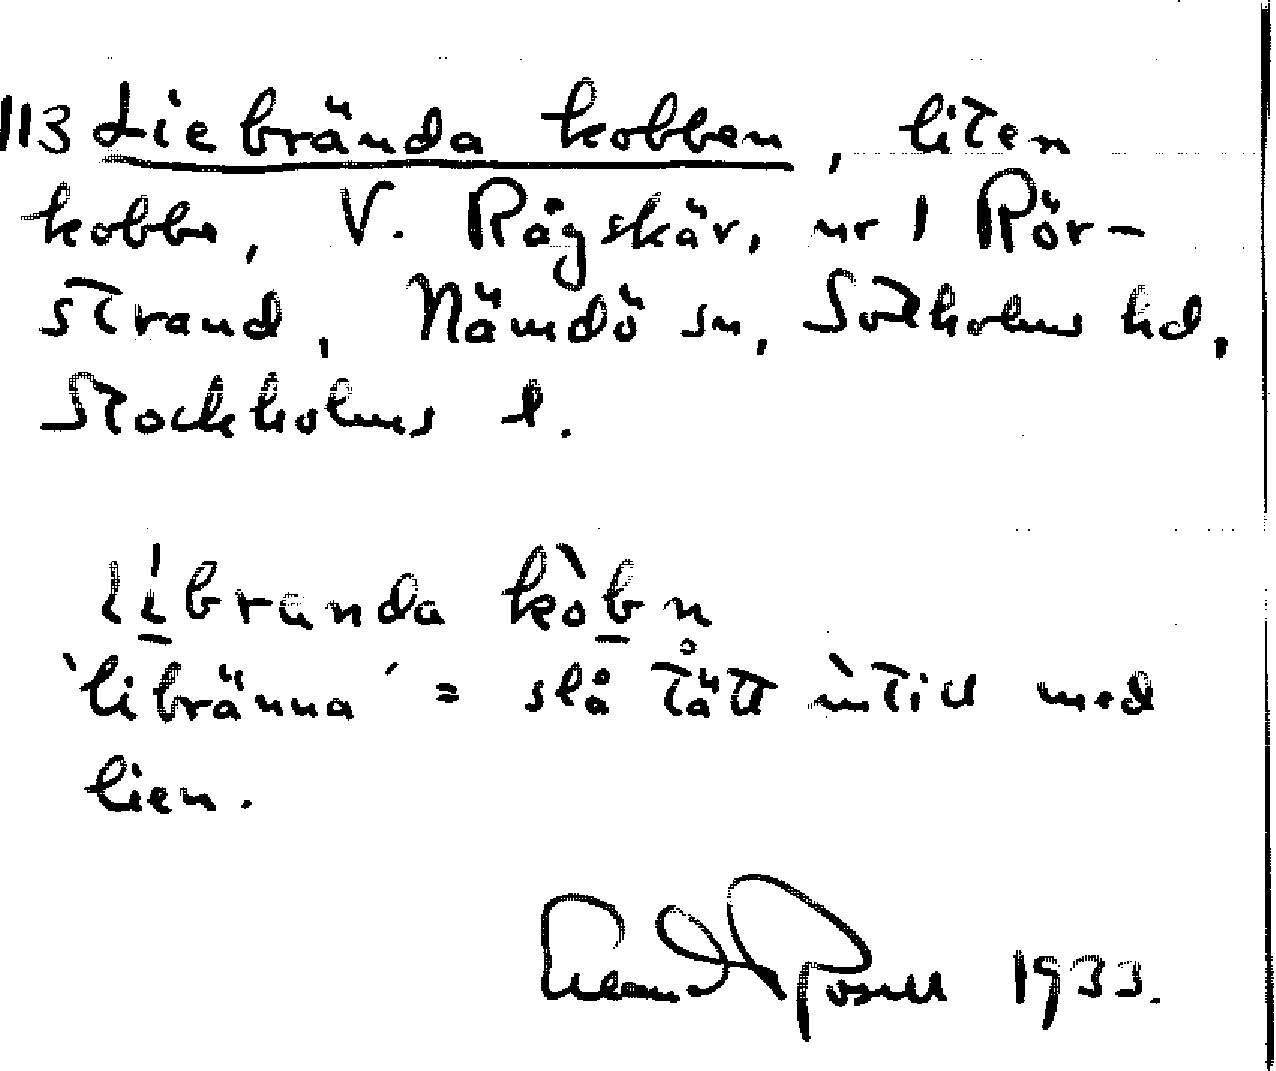 113 Liebrända kobben, liten
kobbe, V. Rågskär, nr 1 Rör-
strand, Nämdö sn, Sotholms hd,
Stockholms l.
lìbranda kòbn̥
'libränna' = slå tätt intill med
lien.
Erland Rosell 1933.